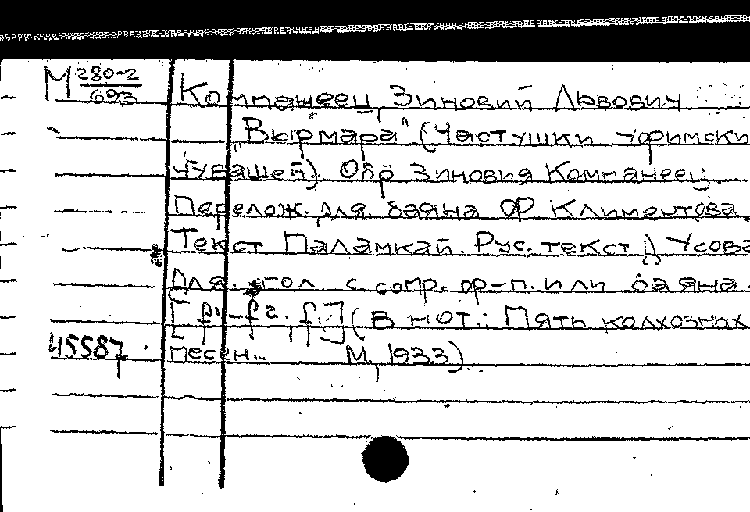 М 280-2
693
Компанеец, Зиновий Львович
"Вырмара" (Частушки уфимски
чувашей). Обр Зиновия Компанеец
Перелож. для баяна Ф Климентова
Текст Паламкай. Рус. текст Д Усова
Для гол с сопр. ф-п. или баяна
(В нот.: Пять колхозных
45587 песен... М, 1933)